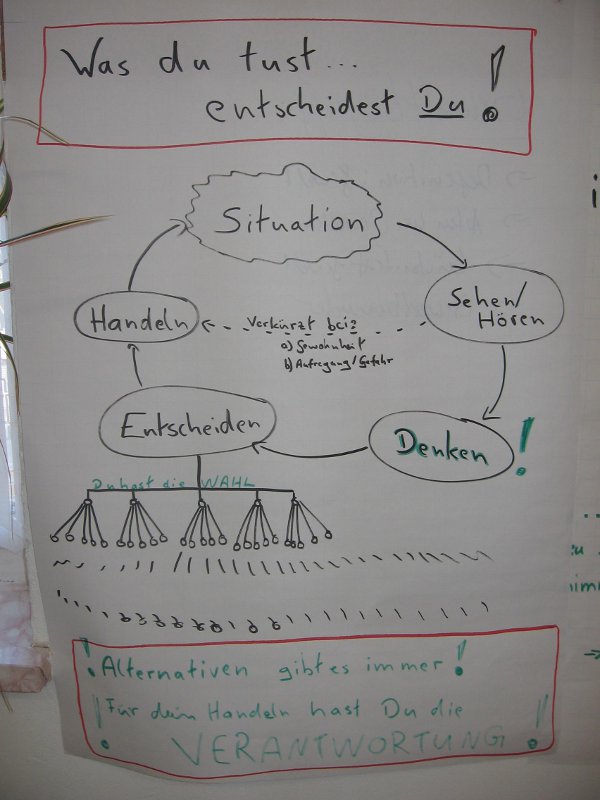 Was du tust...
entscheidest Du!
Situation
Sehen/
Hören
Handeln
Verkürzt bei:
a) Gewohnheit
b) Aufregung/Gefahr
Entscheiden
Denken!
Du hast die WAHL
! Alternativen gibt es immer!
! Für dein Handeln hast Du die !
VERANTWORTUNG